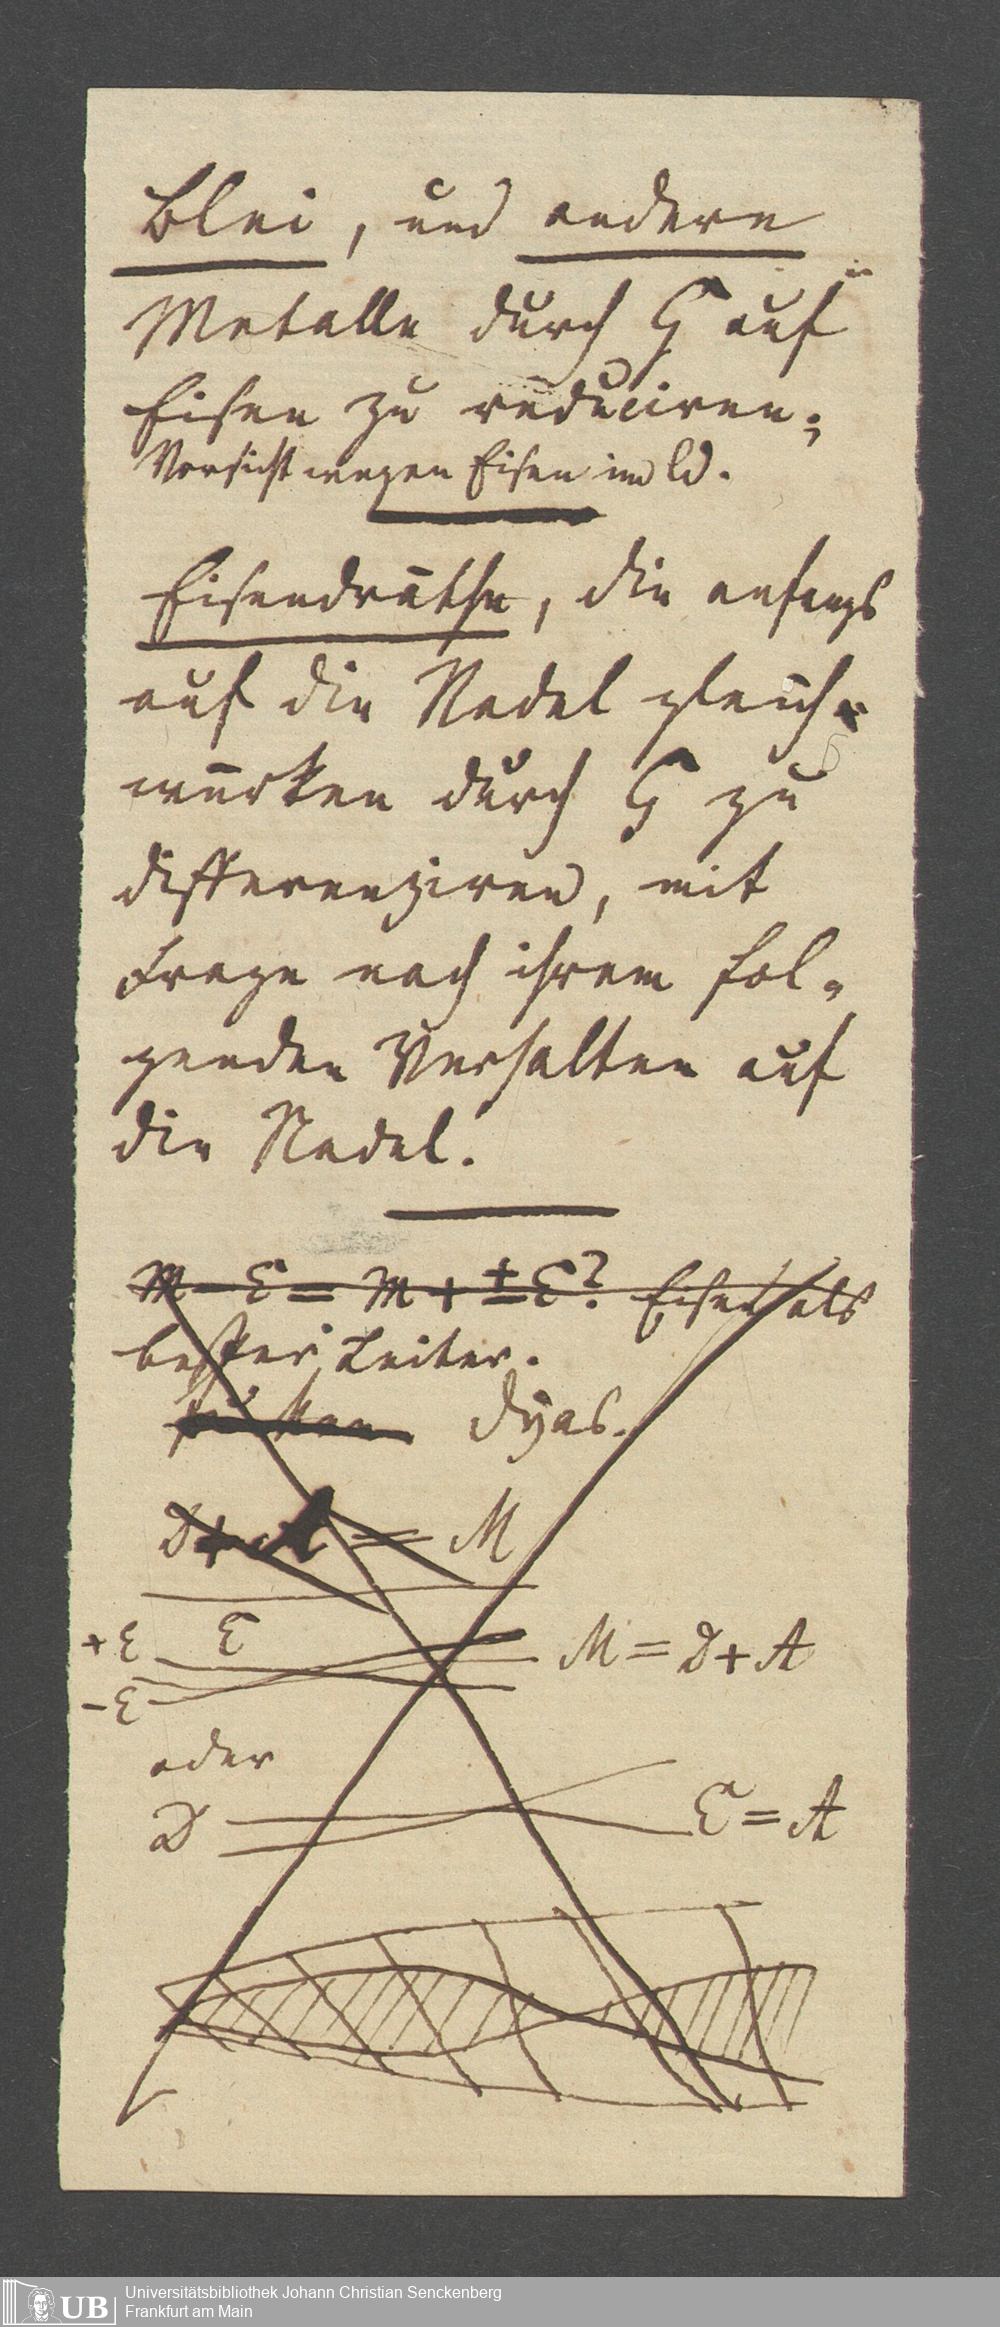 Blei, und andere
Metalle durch G auf
Eisen zu reduciren;
Vorsicht wegen Eisen im
Eisendräthe, die anfangs
auf die Nadel gleich
würken durch G zu
differenziren, mit
Frage nach ihrem fol-
genden Verhalten auf
die Nadel.
M – E = M + ± E? Eisen als
bester Leiter.
Dyas.
D + A = M
+E E
M = D + A
–E
oder
D E = A
UB Universitätsbibliothek Johann Christian Senckenberg
Frankfurt am Main